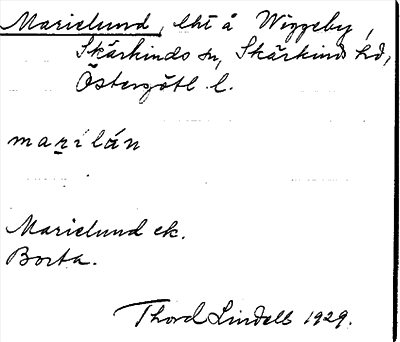 Marielund, lht å Wiggeby,
Skärkinds sn, Skärkinds hd,
Östergötl l.
marilán
Marielund ek.
Borta.
Thord Lindell 1929.